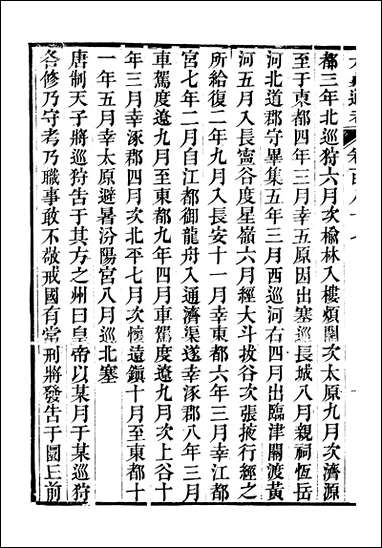 都三年北巡狩六月次榆林入樓煩關次太原九月次濟源
至于東都四年三月幸五原因出塞巡長城八月親祠恆岳
河北道郡守畢集五年三月西巡河右四月出臨津關渡黃
河五月入長寧谷度星嶺六月經大斗拔谷次張掖行經之
所給復二年九月入長安十一月幸東都六年三月幸江都
宮七年二月自江都御龍舟入通濟渠遂幸涿郡八年三月
車駕度遼九月至東都九年四月車駕度遼九月次上谷十
年三月幸涿郡四月次北平七月次懷遠鎮十月至東都十
一年五月幸太原避暑汾陽宮八月巡北塞
唐制天子將巡狩告于其方之州曰皇帝以某月于某巡狩
各修乃守考乃職事敢不敬戒國有常刑將發告于圜丘前